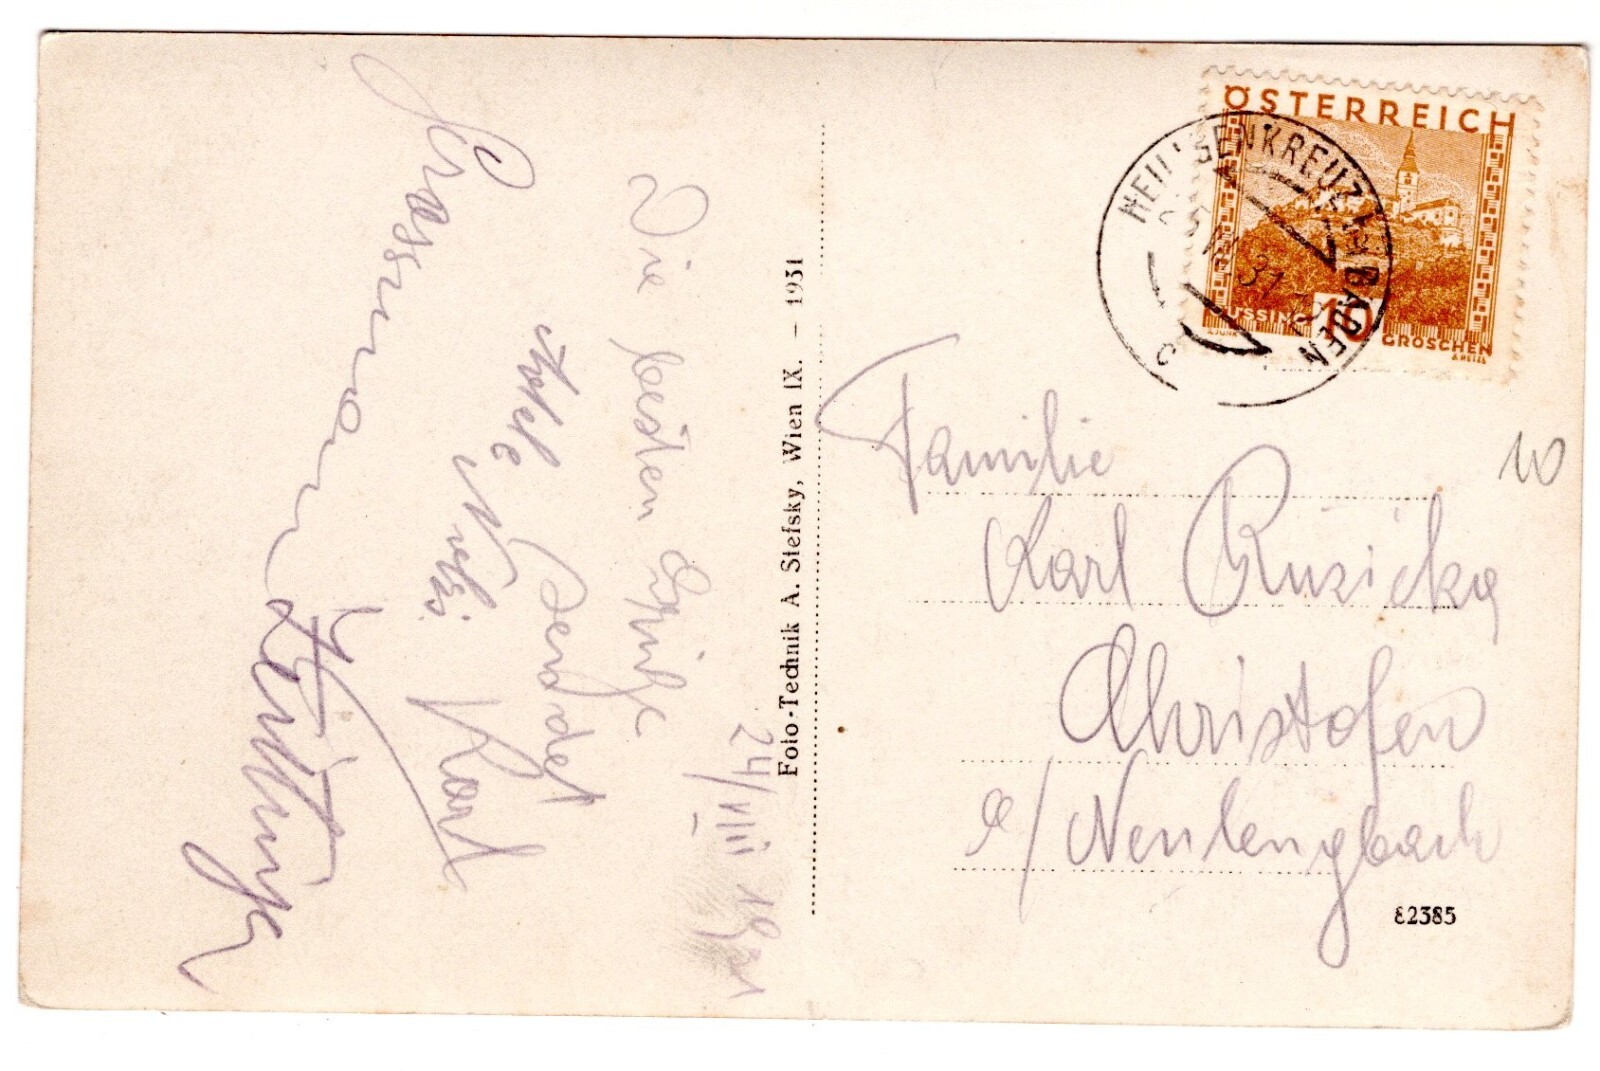 24/VIII 1931
Die besten Grüße
sendet Karl
Adele
Grassmann
ÖSTERREICH
GÜSSING 10
GROSCHEN
HEILIGENKREUZ B. BADEN
Familie
Karl Ruzicka
Christofen
a/ Neulengbach
10
82385
Foto-Technik A. Stefsky, Wien IX. – 1931